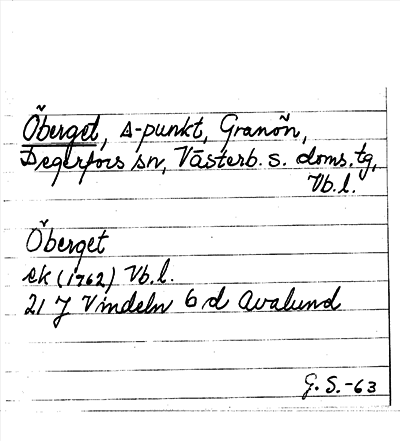 Öberget, Δ-punkt, Granön,
Degerfors sn, Västerb. s. doms. tg,
Vb. l.
Öberget
ek (1962) Vb. l.
21 J Vindeln 6 d Avalund
G. S. -63